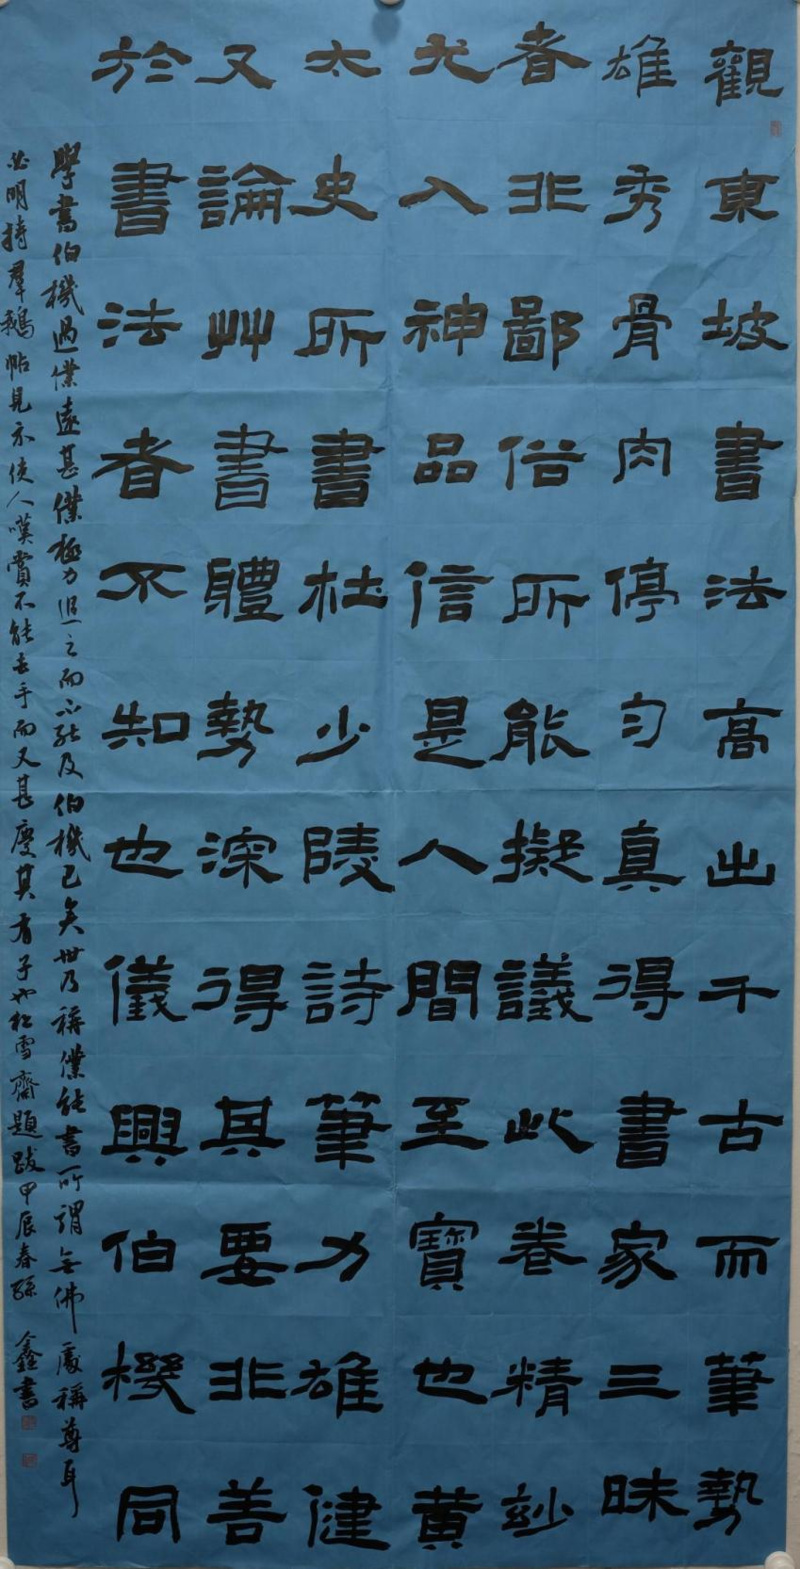 觀東坡書法高出千古而筆勢
雄秀骨肉停勻真得書家三昧
者非鄙俗所能擬議此卷精妙
尤入神品信是人間至寶也黃
太史所書杜少陵詩筆力雄健
又論艸書體勢深得其要非善
於書法者不知也儀興伯機同
學書伯機過僕遠甚僕極力追之而不能及伯機已矣世乃稱僕能書所謂無佛處稱尊耳
必明持羣鵝帖見示使人嘆賞不能去手而又甚慶其有子也松雪齋題跋甲辰春孫鑫書